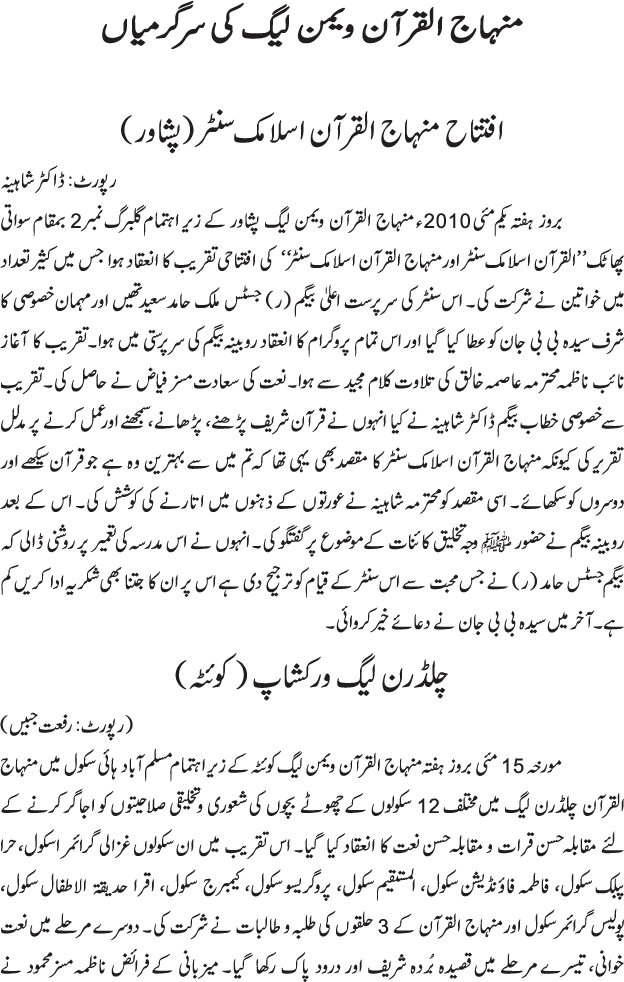 منہاج القرآن ویمن لیگ کی سرگرمیاں
افتتاح منہاج القرآن اسلامک سنٹر (پشاور)
رپورٹ: ڈاکٹر شاہینہ
بروز ہفتہ یکم مئی 2010ء منہاج القرآن ویمن لیگ پشاور کے زیر اہتمام گلبرگ نمبر 2 بمقام سواتی
پھاٹک ’’القرآن اسلامک سنٹر اور منہاج القرآن اسلامک سنٹر‘‘ کی افتتاحی تقریب کا انعقاد ہوا جس میں کثیر تعداد
میں خواتین نے شرکت کی۔ اس سنٹر کی سرپرست اعلیٰ بیگم (ر) جسٹس ملک حامد سعید تھیں اور مہمان خصوصی کا
شرف سیدہ بی بی جان کو عطا کیا گیا اور اس تمام پروگرام کا انعقاد روبینہ بیگم کی سرپرستی میں ہوا۔ تقریب کا آغاز
نائب ناظمہ محترمہ عاصمہ خالق کی تلاوت کلام مجید سے ہوا۔ نعت کی سعادت مسز فیاض نے حاصل کی۔ تقریب
سے خصوصی خطاب بیگم ڈاکٹر شاہینہ نے کیا انہوں نے قرآن شریف پڑھنے، پڑھانے، سمجھنے اور عمل کرنے پر مدلل
تقریر کی کیونکہ منہاج القرآن اسلامک سنٹر کا مقصد بھی یہی تھا کہ تم میں سے بہترین وہ ہے جو قرآن سیکھے اور
دوسروں کو سکھائے۔ اسی مقصد کو محترمہ شاہینہ نے عورتوں کے ذہنوں میں اتارنے کی کوشش کی۔ اس کے بعد
روبینہ بیگم نے حضور ﷺ وجہ تخلیق کائنات کے موضوع پر گفتگو کی۔ انہوں نے اس مدرسہ کی تعمیر پر روشنی ڈالی کہ
بیگم جسٹس حامد (ر) نے جس محبت سے اس سنٹر کے قیام کو ترجیح دی ہے اس پر ان کا جتنا بھی شکریہ ادا کریں کم
ہے۔ آخر میں سیدہ بی بی جان نے دعائے خیر کروائی۔
چلڈرن لیگ ورکشاپ (کوئٹہ)
(رپورٹ: رفعت جبیں)
مورخہ 15 مئی بروز ہفتہ منہاج القرآن ویمن لیگ کوئٹہ کے زیر اہتمام مسلم آباد ہائی سکول میں منہاج
القرآن چلڈرن لیگ میں مختلف 12 سکولوں کے چھوٹے بچوں کی شعوری و تخلیقی صلاحیتوں کو اجاگر کرنے کے
لئے مقابلہ حسن قرات و مقابلہ حسن نعت کا انعقاد کیا گیا۔ اس تقریب میں ان سکولوں غزالی گرائمر اسکول، حرا
پبلک سکول، فاطمہ فاؤنڈیشن سکول، المستقیم سکول، پروگریسو سکول، کیمبرج سکول، اقرا حدیقۃ الاطفال سکول،
پولیس گرائمر سکول اور منہاج القرآن کے 3 حلقوں کی طلبہ و طالبات نے شرکت کی۔ دوسرے مرحلے میں نعت
خوانی، تیسرے مرحلے میں قصیدہ بُردہ شریف اور درود پاک رکھا گیا۔ میزبانی کے فرائض ناظمہ مسز محمود نے